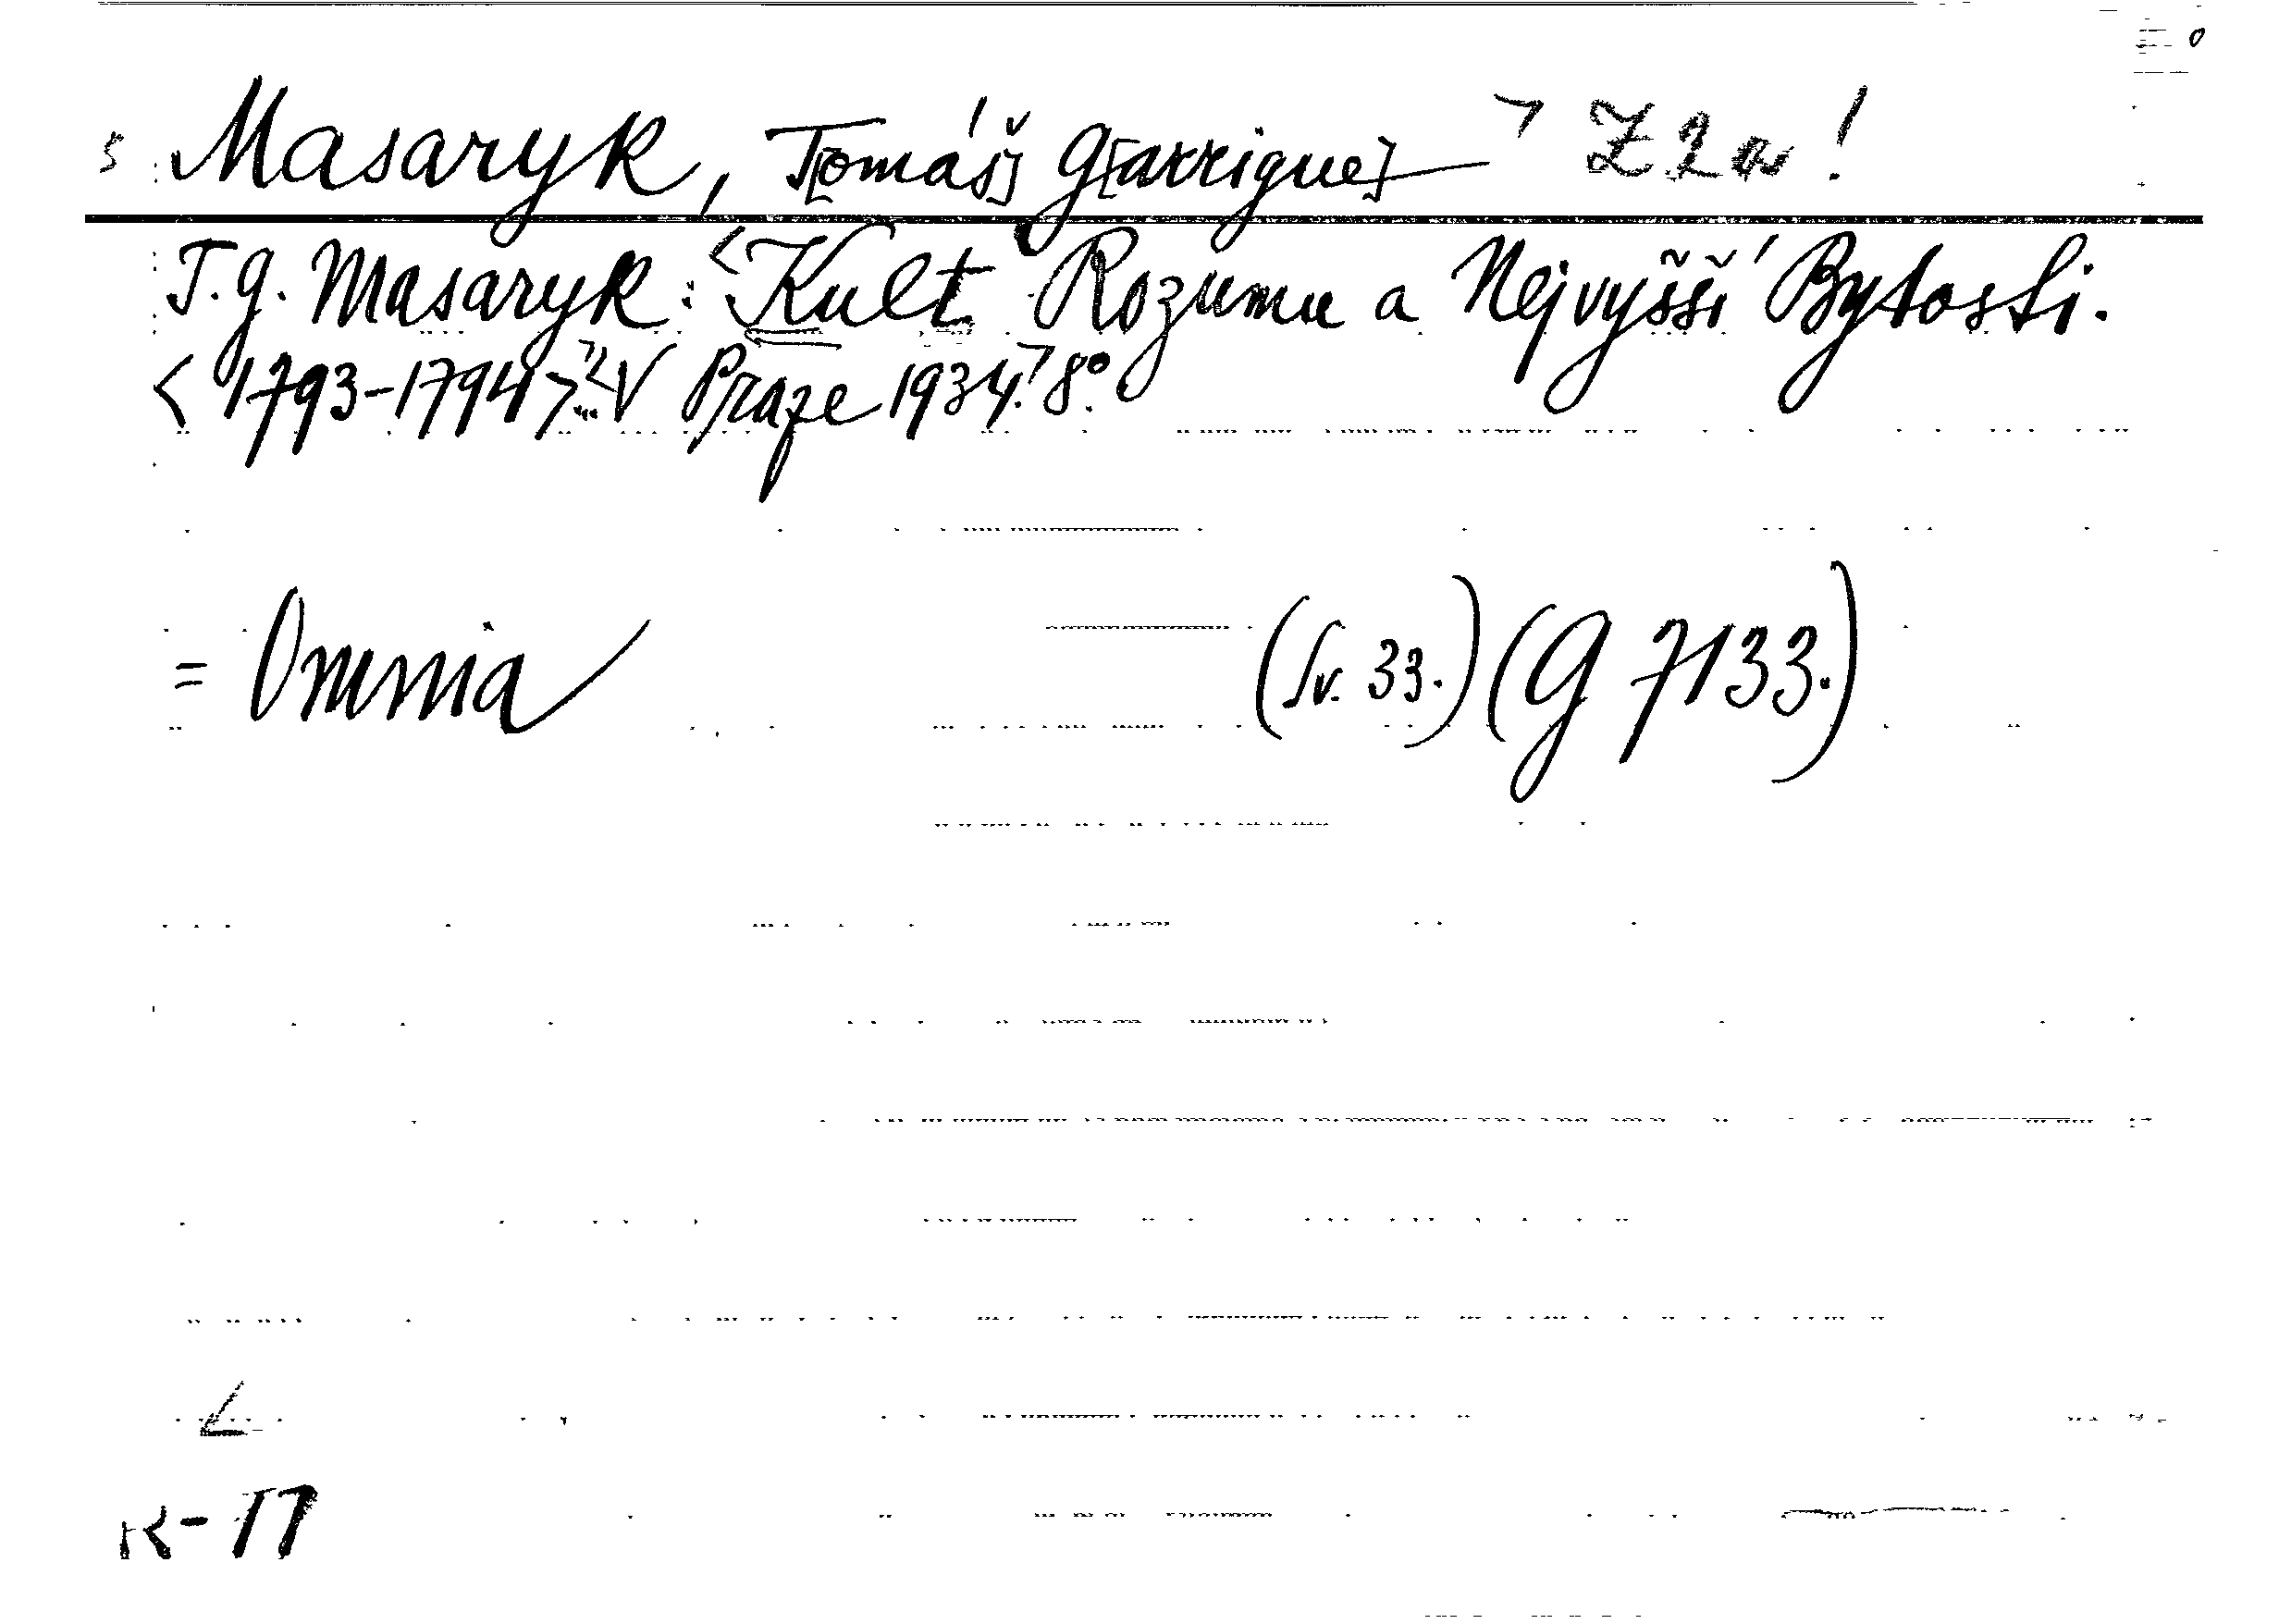 Masaryk, T[omáš] G[arrigue] Z2a!
T.G. Masaryk: <Kult Rozumu a Nejvyšší Bytosti.
<1793-1794>... V Praze 1934. 8°.
= Omnia (Sv. 33.) (G 7133.)
K-17